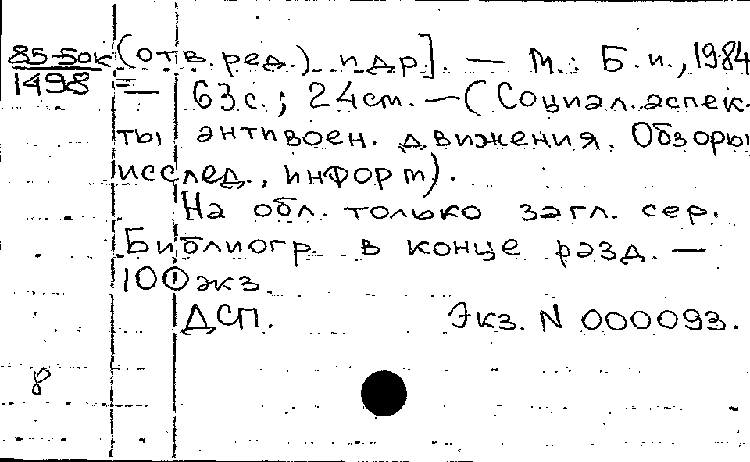 85-50к (отв. ред.) и др]. — М.: Б. и., 1984
1498 = — 63 с.; 24 см. — (Социал. аспек-
ты антивоен. движения. Обзоры
исслед., информ).
На обл. только загл. сер.
Библиогр. в конце разд. —
100 экз.
ДСП. Экз. N 000093.
8